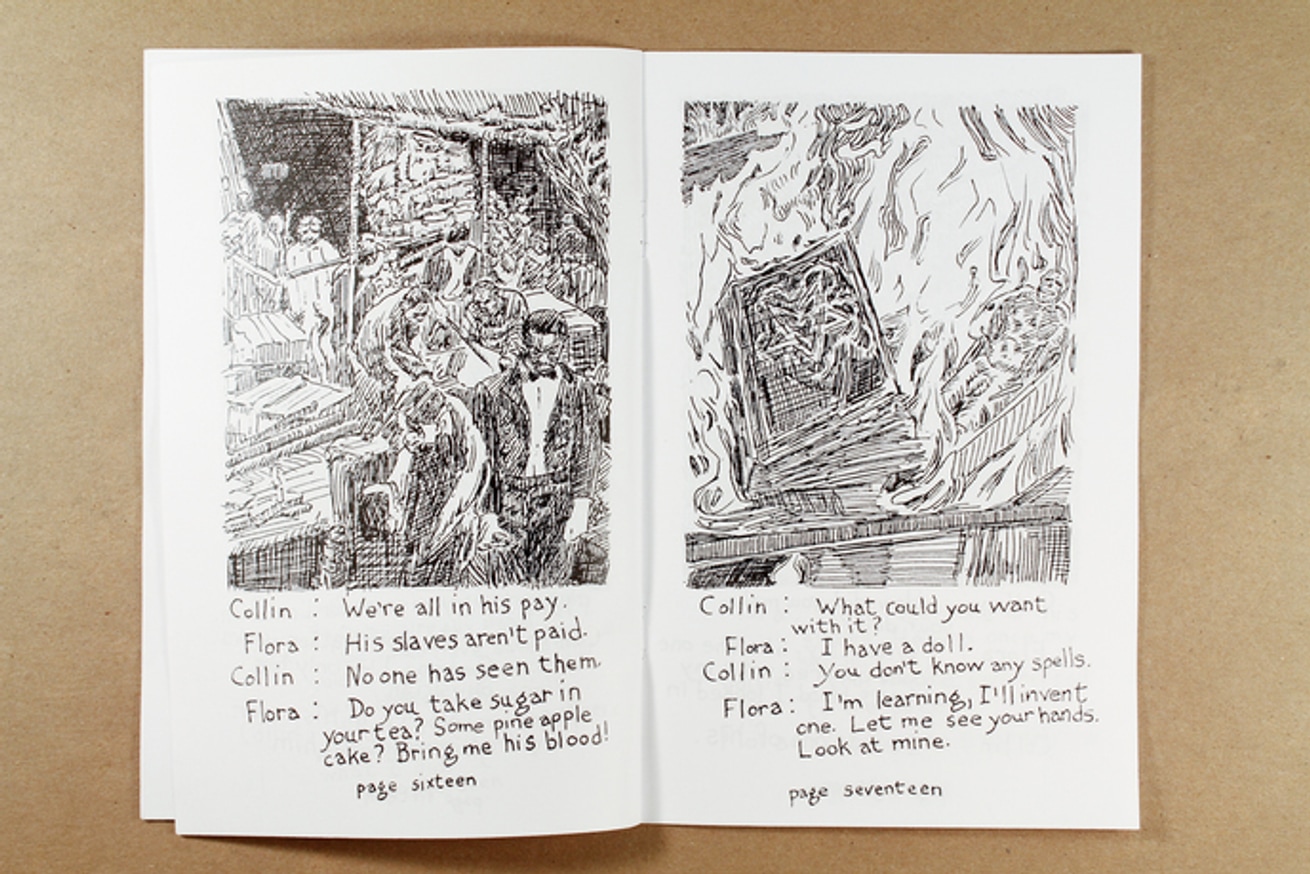 Collin : We're all in his pay.
Flora : His slaves aren't paid.
Collin : No one has seen them.
Flora : Do you take sugar in
your tea? Some pine apple
cake? Bring me his blood!
page sixteen
Collin : What could you want
with it?
Flora : I have a doll.
Collin : You don't know any spells.
Flora : I'm learning, I'll invent
one. Let me see your hands.
Look at mine.
page seventeen